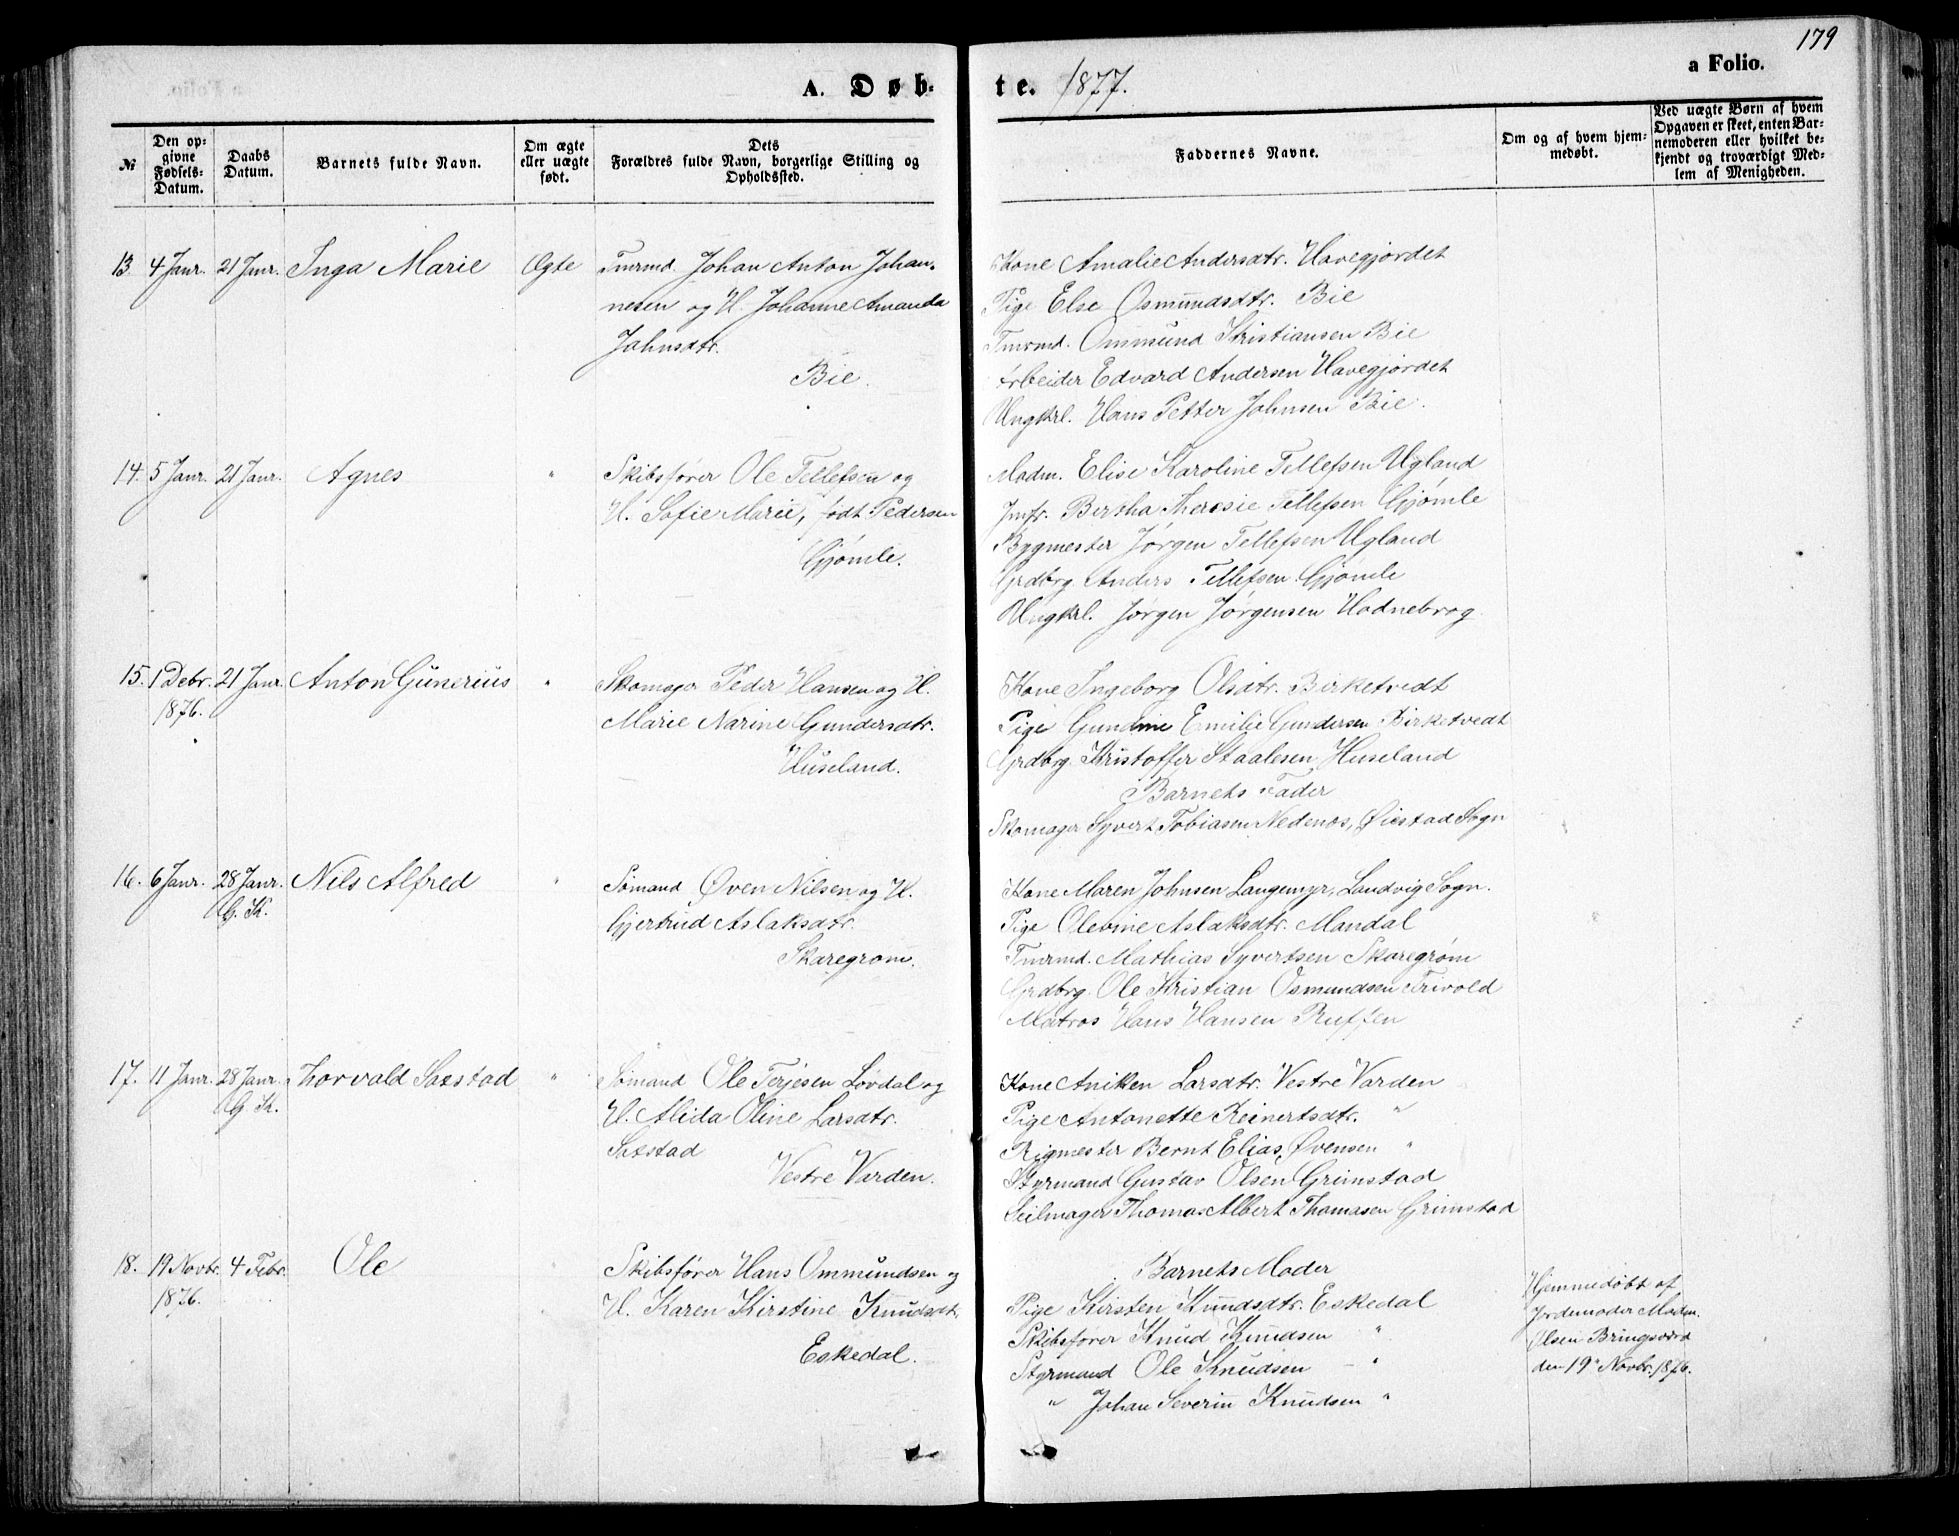 179
A. Døb-
te. 1877.
a Folio.
№
Den op-
givne
Fødsels-
Datum.
Daabs
Datum.
Barnets fulde Navn.
Om ægte
eller uægte
født.
Dets
Forældres fulde Navn, borgerlige Stilling og
Opholdssted.
Faddernes Navne.
Om og af hvem hjem-
medøbt.
Ved uægte Børn af hvem
Opgaven er skeet, enten Bar-
nemoderen eller hvilket be-
kjendt og troværdigt Med-
lem af Menigheden.
13 4 Janr. 21 Janr. Inga Marie Ægte Tmrmd. Johan Anton Johan-
nesen og H. Johanne Amanda
Johnsdtr.
Bie.
Kone Amalie Andersdtr. Havegjørdet
Pige Else Osmundsdtr. Bie
Tmrmd. Ommund Kristiansen Bie
Arbeider Edvard Andersen Havegjørdet
Ungkrl. Hans Petter Johnsen Bie.
14. 5 Janr. 21 Janr. Agnes " Skibsfører Ole Tellefsen og
H. Sofie Marie, født Pedersen
Gjømle.
Madm. Elise Karoline Tellefsen Ugland
Jmfr. Bertha Theresie Tellefsen Gjømle
Bygmester Jørgen Tellefsen Ugland
Grdbrg. Anders Tellefsen Gjømle
Ungkrl. Jørgen Jørgensen Hodnebrog.
15. 1 Debr. 21 Janr. Anton Gunerius " Skomager Peder Hansen og H.
1876.
Marie Narine Gundersdtr.
Huseland.
Kone Ingeborg Olsdtr. Birketvedt
Pige Gundine Emilie Gundersen Birketvedt
Grdbrg. Kristoffer Staalesen Huseland
Barnets Fader
Skomager Syvert Tobiasen Nedenæs, Øiestad Sogn
16. 6 Janr. 28 Janr. Nils Alfred " Sømand Øven Nilsen og H.
G. K.
Gjertrud Aslaksdtr.
Skaregrøm.
Kone Maren Johnsen Langemyr, Landvig Sogn.
Pige Olevine Aslaksdtr. Mandal
Tmrmd. Mathias Syvertsen Skaregrøm
Grdbrg. Ole Kristian Osmundsen Trivold
Matros Hans Hansen Ruffen
17. 11 Janr. 28 Janr. Thorvald Saxstad " Sømand Ole Terjesen Løvdal og
G. K.
H. Alida Oline Larsdtr.
Saxstad
Vestre Varden.
Kone Aniken Larsdtr. Vestre Varden
Pige Antonette Reinertsdtr. "
Rigmester Bernt Elias Øvensen "
Styrmand Gustav Olsen Grimstad
Seilmager Thomas Albert Thomasen Grimstad
18. 19 Novbr. 4 Febr. Ole Skibsfører Hans Ommundsen og
1876.
H. Karen Kirstine Knudsdtr.
Eskedal.
Barnets Moder
Pige Kirsten Knudsdtr. Eskedal
Skibsfører Knud Knudsen "
Styrmand Ole Knudsen — "
" Johan Severin Knudsen "
Hjemmedøbt af
Jordemoder Madm.
Olsen Bringsværd
den 19de Novbr. 1876.